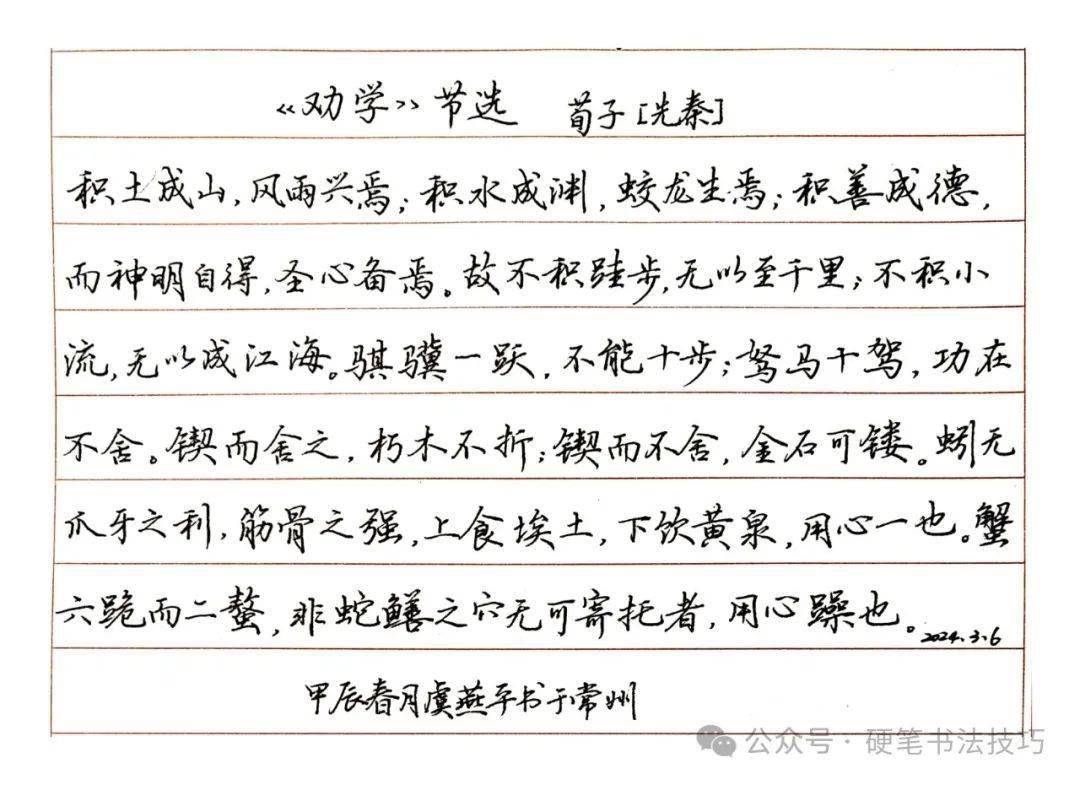 《劝学》节选 荀子[先秦]
积土成山,风雨兴焉;积水成渊,蛟龙生焉;积善成德,
而神明自得,圣心备焉。故不积跬步,无以至千里;不积小
流,无以成江海。骐骥一跃,不能十步;驽马十驾,功在
不舍。锲而舍之,朽木不折;锲而不舍,金石可镂。蚓无
爪牙之利,筋骨之强,上食埃土,下饮黄泉,用心一也。蟹
六跪而二螯,非蛇鳝之穴无可寄托者,用心躁也。2024.3.6
甲辰春月虞燕平书于常州
公众号·硬笔书法技巧